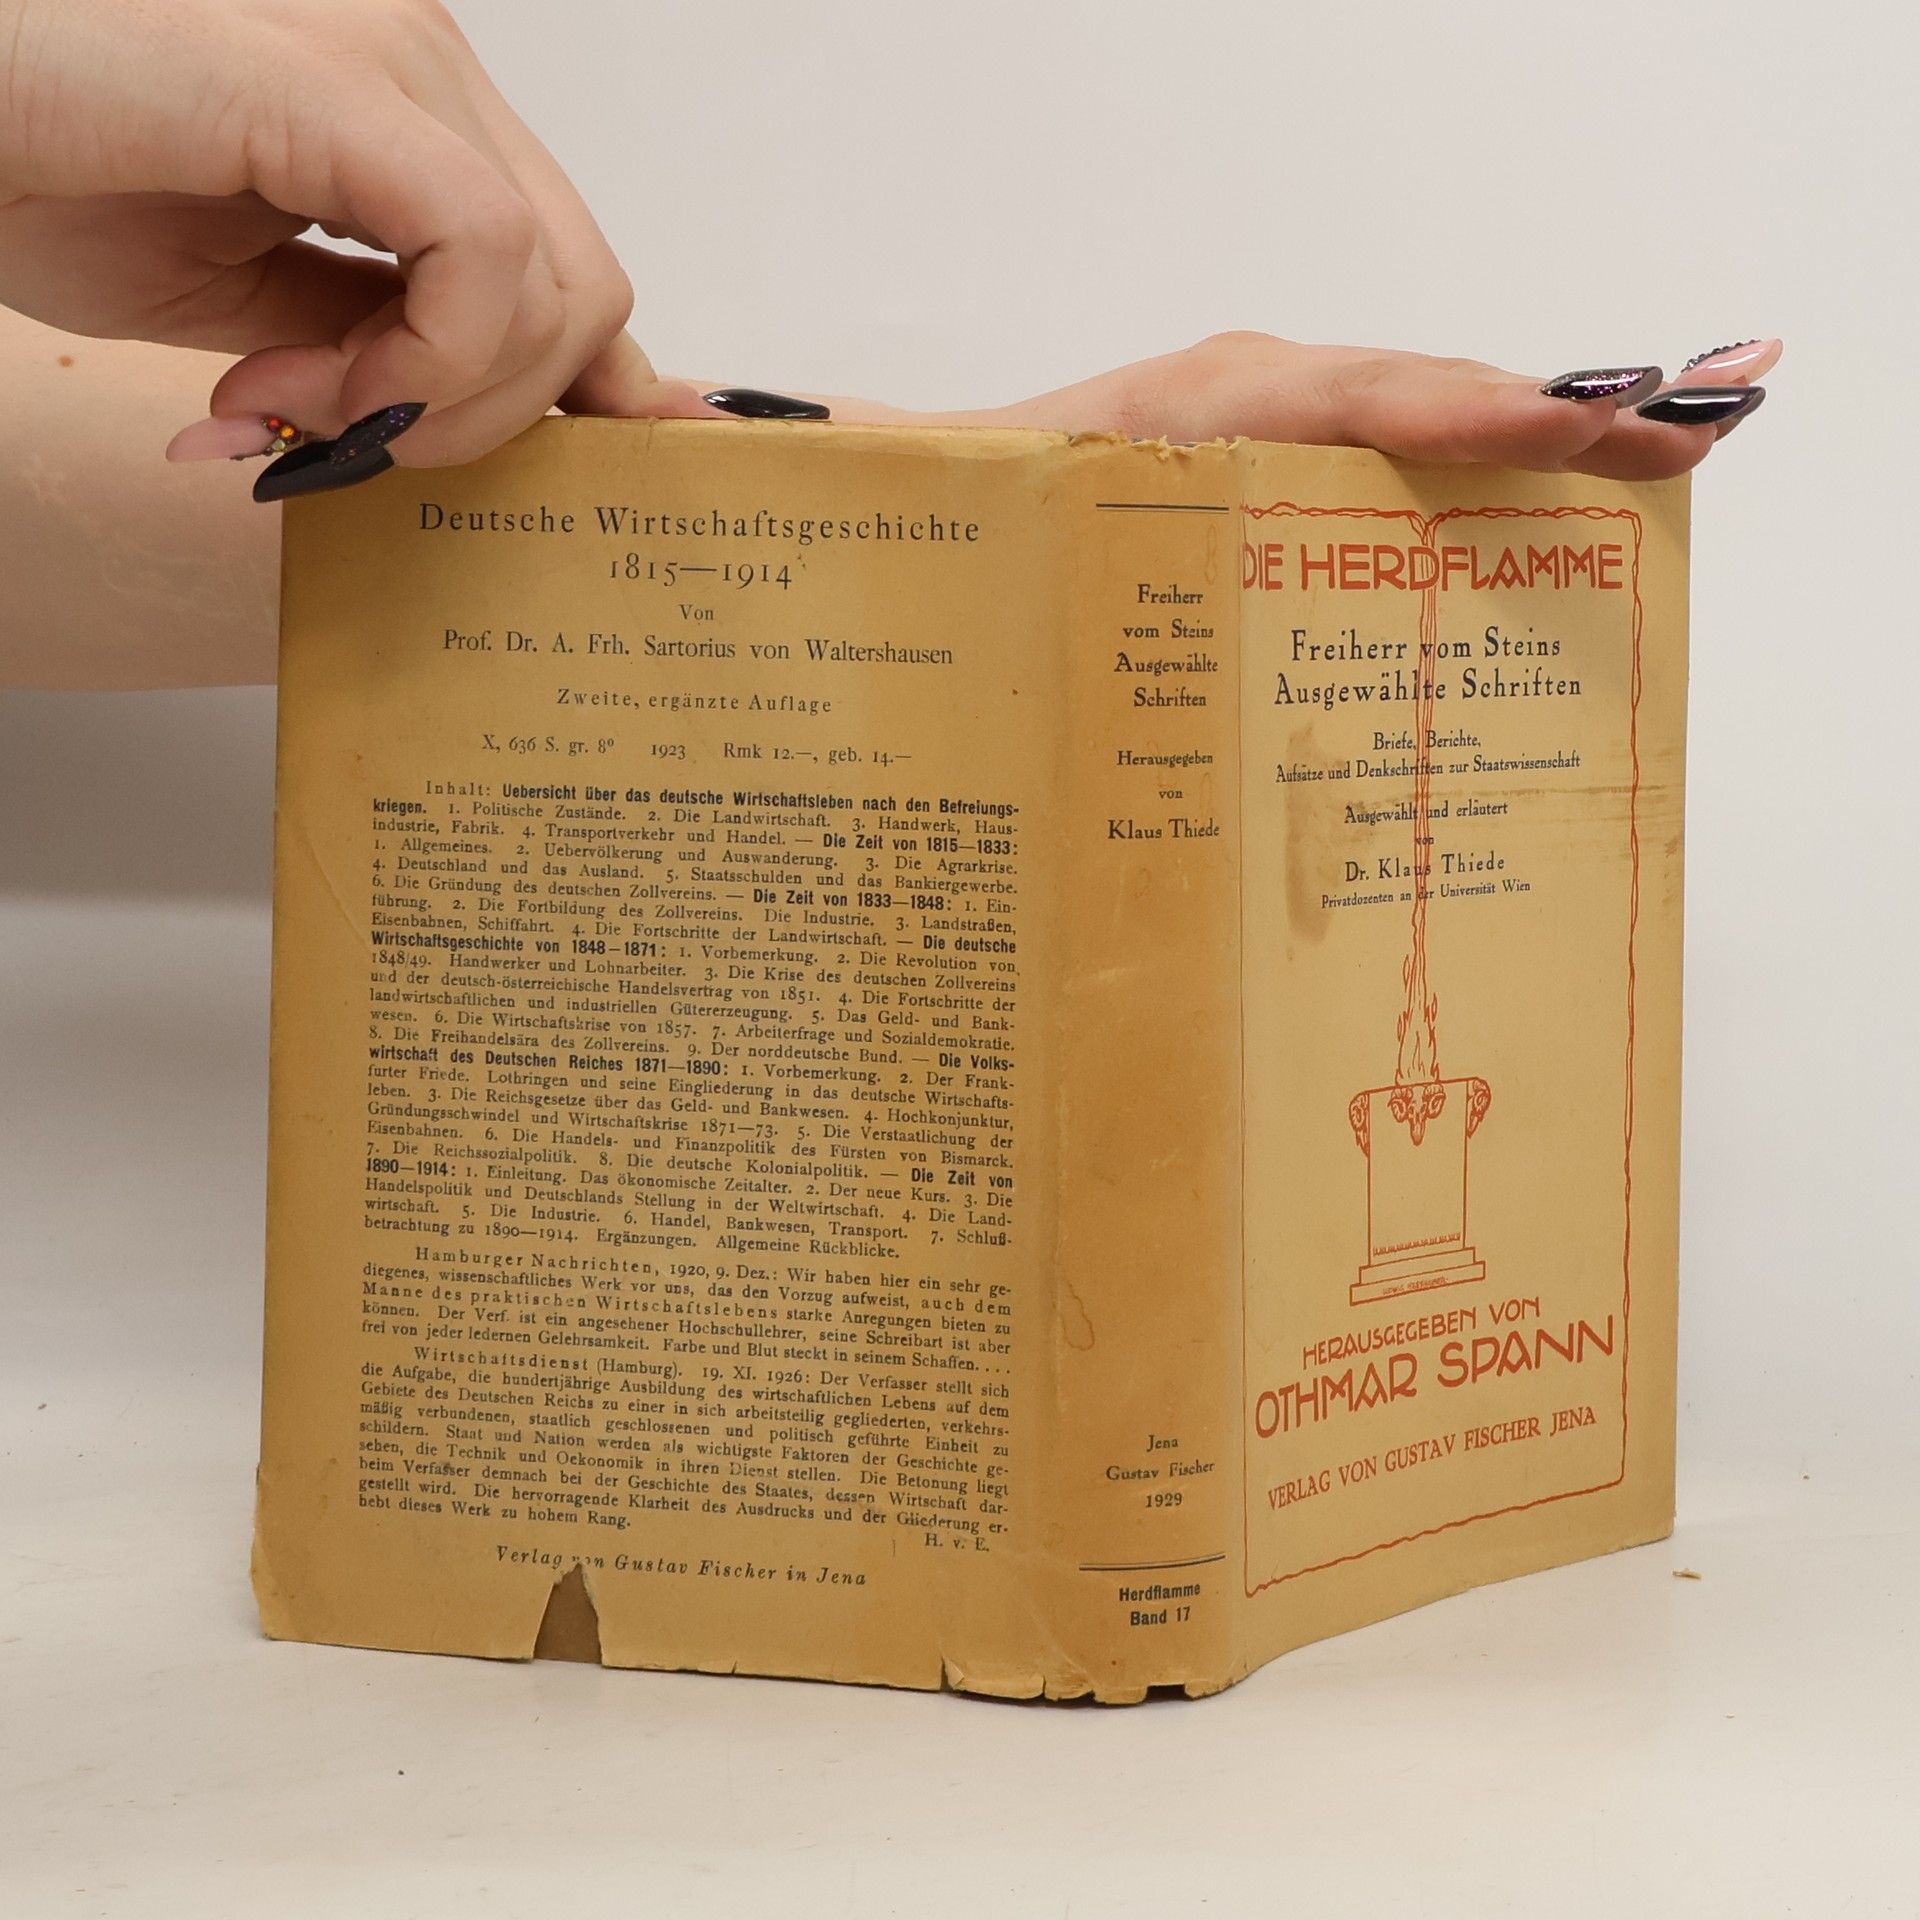 Deutsche Wirtschaftsgeschichte
1815—1914
Von
Prof. Dr. A. Frh. Sartorius von Waltershausen
Zweite, ergänzte Auflage
X, 636 S. gr. 8° 1923 Rmk 12.—, geb. 14.—
Inhalt: Uebersicht über das deutsche Wirtschaftsleben nach den Befreiungs-
kriegen. 1. Politische Zustände. 2. Die Landwirtschaft. 3. Handwerk, Haus-
industrie, Fabrik. 4. Transportverkehr und Handel. — Die Zeit von 1815—1833:
1. Allgemeines. 2. Uebervölkerung und Auswanderung. 3. Die Agrarkrise.
4. Deutschland und das Ausland. 5. Staatsschulden und das Bankiergewerbe.
6. Die Gründung des deutschen Zollvereins. — Die Zeit von 1833—1848: 1. Ein-
führung. 2. Die Fortbildung des Zollvereins. Die Industrie. 3. Landstraßen,
Eisenbahnen, Schiffahrt. 4. Die Fortschritte der Landwirtschaft. — Die deutsche
Wirtschaftsgeschichte von 1848—1871: 1. Vorbemerkung. 2. Die Revolution von
1848/49. Handwerker und Lohnarbeiter. 3. Die Krise des deutschen Zollvereins
und der deutsch-österreichische Handelsvertrag von 1851. 4. Die Fortschritte der
landwirtschaftlichen und industriellen Gütererzeugung. 5. Das Geld- und Bank-
wesen. 6. Die Wirtschaftskrise von 1857. 7. Arbeiterfrage und Sozialdemokratie.
8. Die Freihandelsära des Zollvereins. 9. Der norddeutsche Bund. — Die Volks-
wirtschaft des Deutschen Reiches 1871—1890: 1. Vorbemerkung. 2. Der Frank-
furter Friede. Lothringen und seine Eingliederung in das deutsche Wirtschafts-
leben. 3. Die Reichsgesetze über das Geld- und Bankwesen. 4. Hochkonjunktur,
Gründungsschwindel und Wirtschaftskrise 1871—73. 5. Die Verstaatlichung der
Eisenbahnen. 6. Die Handels- und Finanzpolitik des Fürsten von Bismarck.
7. Die Reichssozialpolitik. 8. Die deutsche Kolonialpolitik. — Die Zeit von
1890—1914: 1. Einleitung. Das ökonomische Zeitalter. 2. Der neue Kurs. 3. Die
Handelspolitik und Deutschlands Stellung in der Weltwirtschaft. 4. Die Land-
wirtschaft. 5. Die Industrie. 6. Handel, Bankwesen, Transport. 7. Schluß-
betrachtung zu 1890—1914. Ergänzungen. Allgemeine Rückblicke.
Hamburger Nachrichten, 1920, 9. Dez.: Wir haben hier ein sehr ge-
diegenes, wissenschaftliches Werk vor uns, das den Vorzug aufweist, auch dem
Manne des praktischen Wirtschaftslebens starke Anregungen bieten zu
können. Der Verf. ist ein angesehener Hochschullehrer, seine Schreibart ist aber
frei von jeder ledernen Gelehrsamkeit. Farbe und Blut steckt in seinem Schaffen. . . .
Wirtschaftsdienst (Hamburg). 19. XI. 1926: Der Verfasser stellt sich
die Aufgabe, die hundertjährige Ausbildung des wirtschaftlichen Lebens auf dem
Gebiete des Deutschen Reichs zu einer in sich arbeitsteilig gegliederten, verkehrs-
mäßig verbundenen, staatlich geschlossenen und politisch geführte Einheit zu
schildern. Staat und Nation werden als wichtigste Faktoren der Geschichte ge-
sehen, die Technik und Oekonomik in ihren Dienst stellen. Die Betonung liegt
beim Verfasser demnach bei der Geschichte des Staates, dessen Wirtschaft dar-
gestellt wird. Die hervorragende Klarheit des Ausdrucks und der Gliederung er-
hebt dieses Werk zu hohem Rang.
H. v. E.
Verlag von Gustav Fischer in Jena
Freiherr
vom Steins
Ausgewählte
Schriften
Herausgegeben
von
Klaus Thiede
Jena
Gustav Fischer
1929
Herdflamme
Band 17
DIE HERDFLAMME
Freiherr vom Steins
Ausgewählte Schriften
Briefe, Berichte,
Aufsätze und Denkschriften zur Staatswissenschaft
Ausgewählt und erläutert
von
Dr. Klaus Thiede
Privatdozenten an der Universität Wien
HERAUSGEGEBEN VON
OTHMAR SPANN
VERLAG VON GUSTAV FISCHER JENA